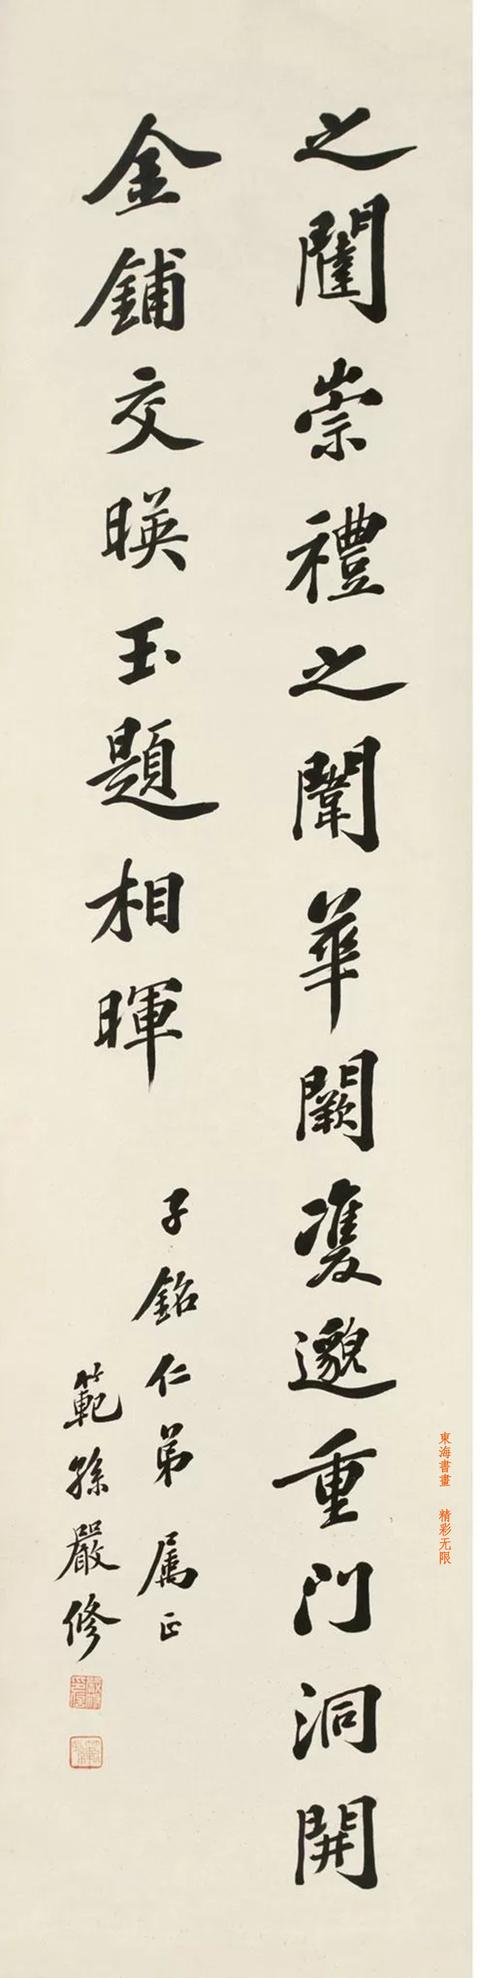 之闥崇禮之闈華闕雙邈重门洞開
金鋪交暎玉題相暉
子銘仁弟属正
範孫嚴修
東海書畫 精彩无限